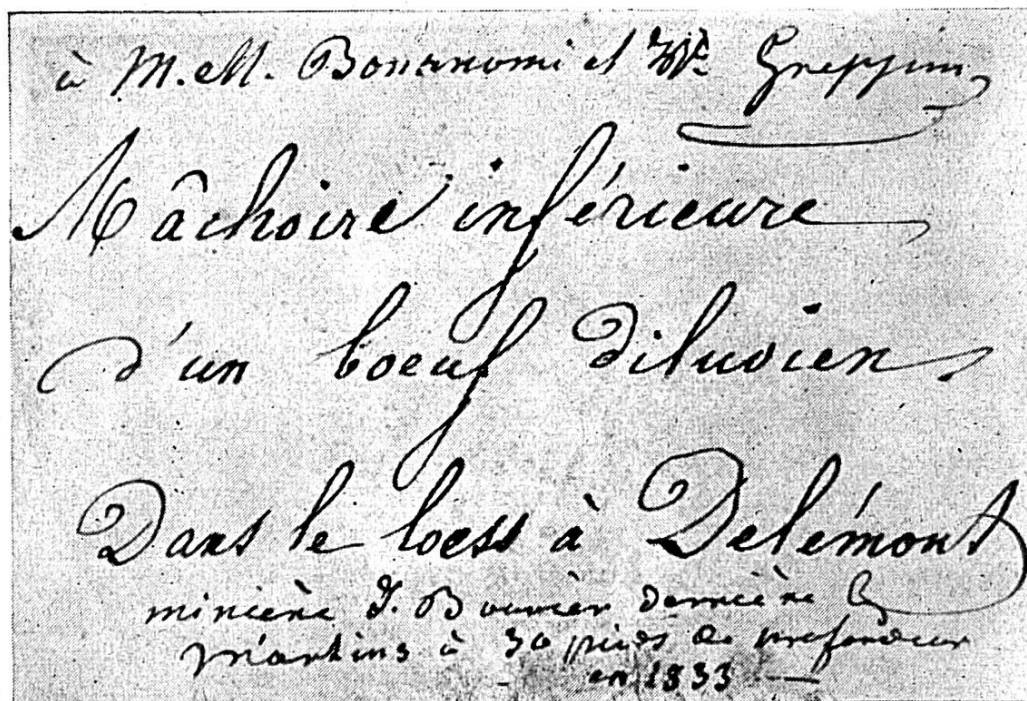 à M. M. Bonanomi et Greppin
Mâchoire inférieure
d'un boeuf diluvien
Dans le loess à Delémont
minière J. Bouvier derrière
Martins à 30 pieds de profondeur
en 1833 —